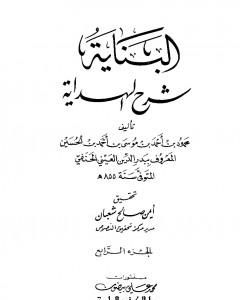 البناية
شرح الهداية
تأليف
محمود بن أحمد بن موسى بن أحمد بن الحسين
المعروف ببدر الدين العيني الحنفي
المتوفى سنة ٨٥٥ هـ
تحقيق
أمين صالح شعبان
الجزء الرابع
منشورات
محمد علي بيضون